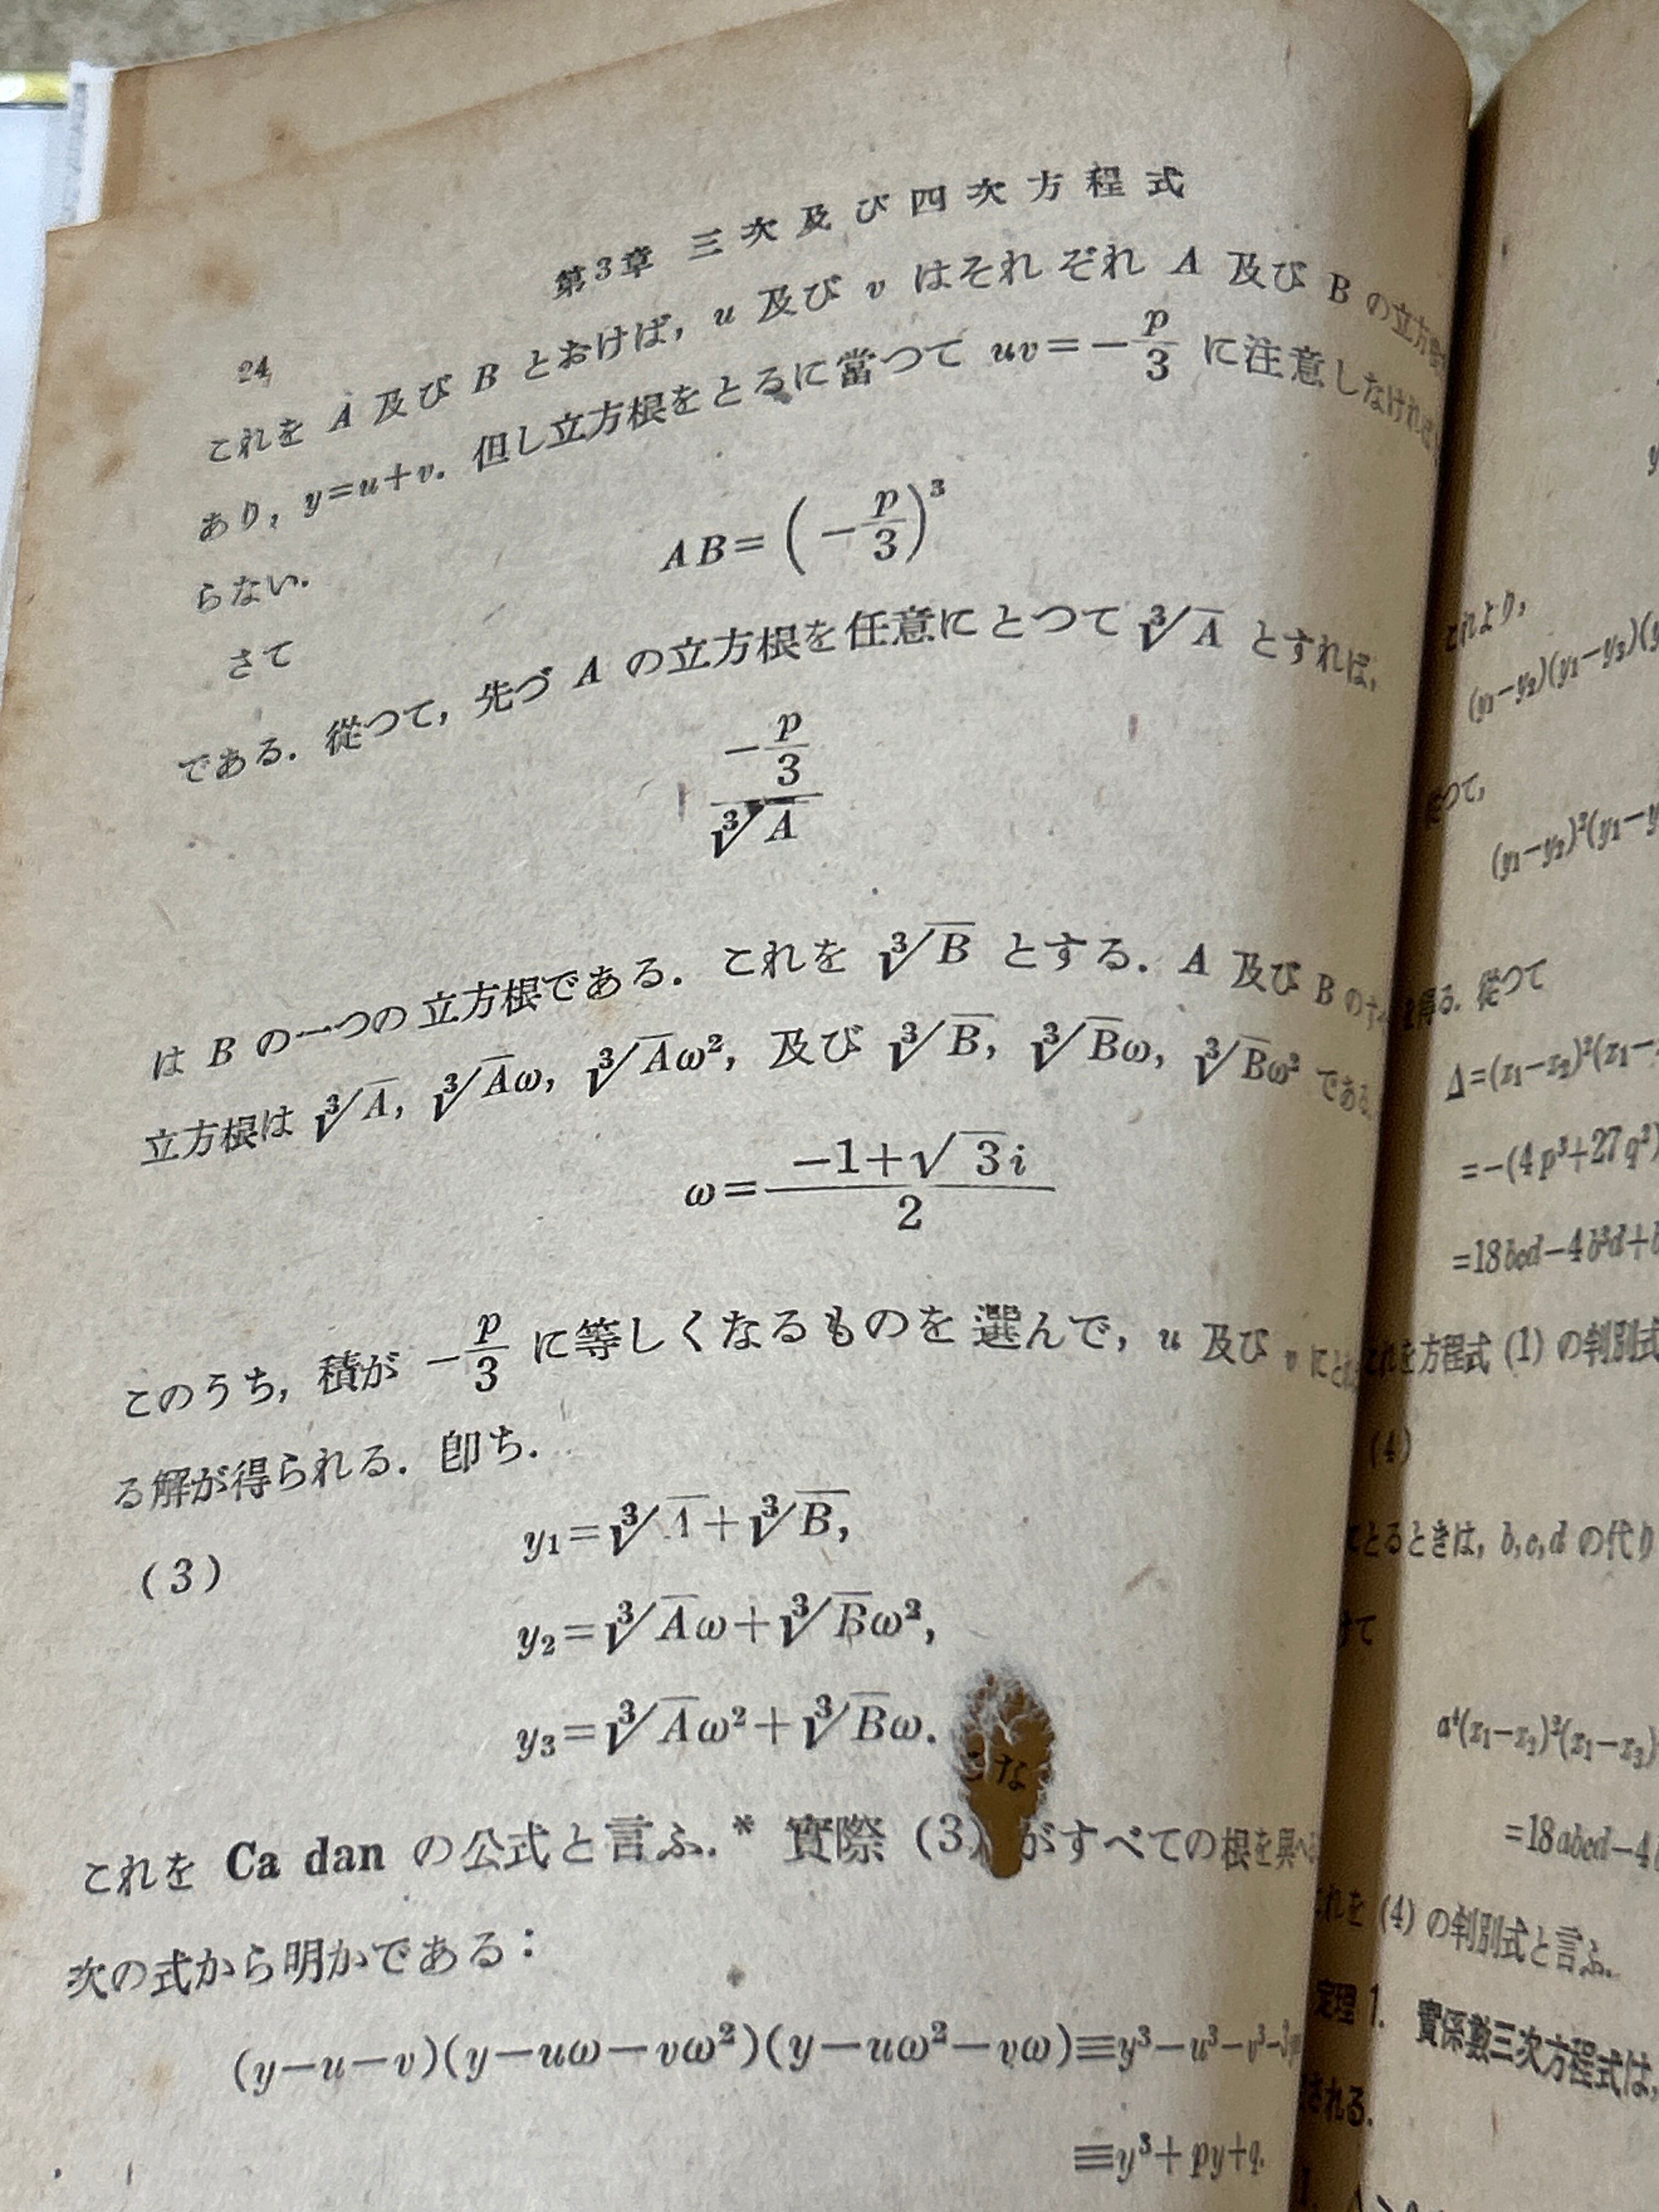 24
第3章 三次及び四次方程式
これを A 及び B とおけば, u 及び v はそれぞれ A 及び B の立方
あり, y=u+v. 但し立方根をとるに當つて uv=-p/3 に注意しなければ
らない.
さて
AB=(-p/3)³
である. 從つて, 先づ A の立方根を任意にとつて ∛A とすれば,
-p/3
∛A
は B の一つの立方根である. これを ∛B とする. A 及び B の
立方根は ∛A, ∛Aω, ∛Aω², 及び ∛B, ∛Bω, ∛Bω² である.
ω=(-1+√3i)/2
このうち, 積が -p/3 に等しくなるものを選んで, u 及び v に
る解が得られる. 卽ち.
(3)
y₁=∛A+∛B,
y₂=∛Aω+∛Bω²,
y₃=∛Aω²+∛Bω.
これを Ca dan の公式と言ふ.* 實際 (3) がすべての根を
次の式から明かである:
(y-u-v)(y-uω-vω²)(y-uω²-vω)≡y³-u³-v³-3
≡y³+py+q.
これより,
(y₁-y₂)(y₁-y₃)
つて,
(y₁-y₂)²(y₁-y
得る. 從つて
Δ=(x₁-x₂)²(x₁-
=-(4p³+27q²)
=18bcd-4b³d+
これを方程式 (1) の判別式
(4)
とるときは, b,c,d の代り
て
a⁴(x₁-x₂)²(x₁-x₃)
=18abcd-4
これを (4) の判別式と言ふ.
定理 1. 實係數三次方程式は,
される.